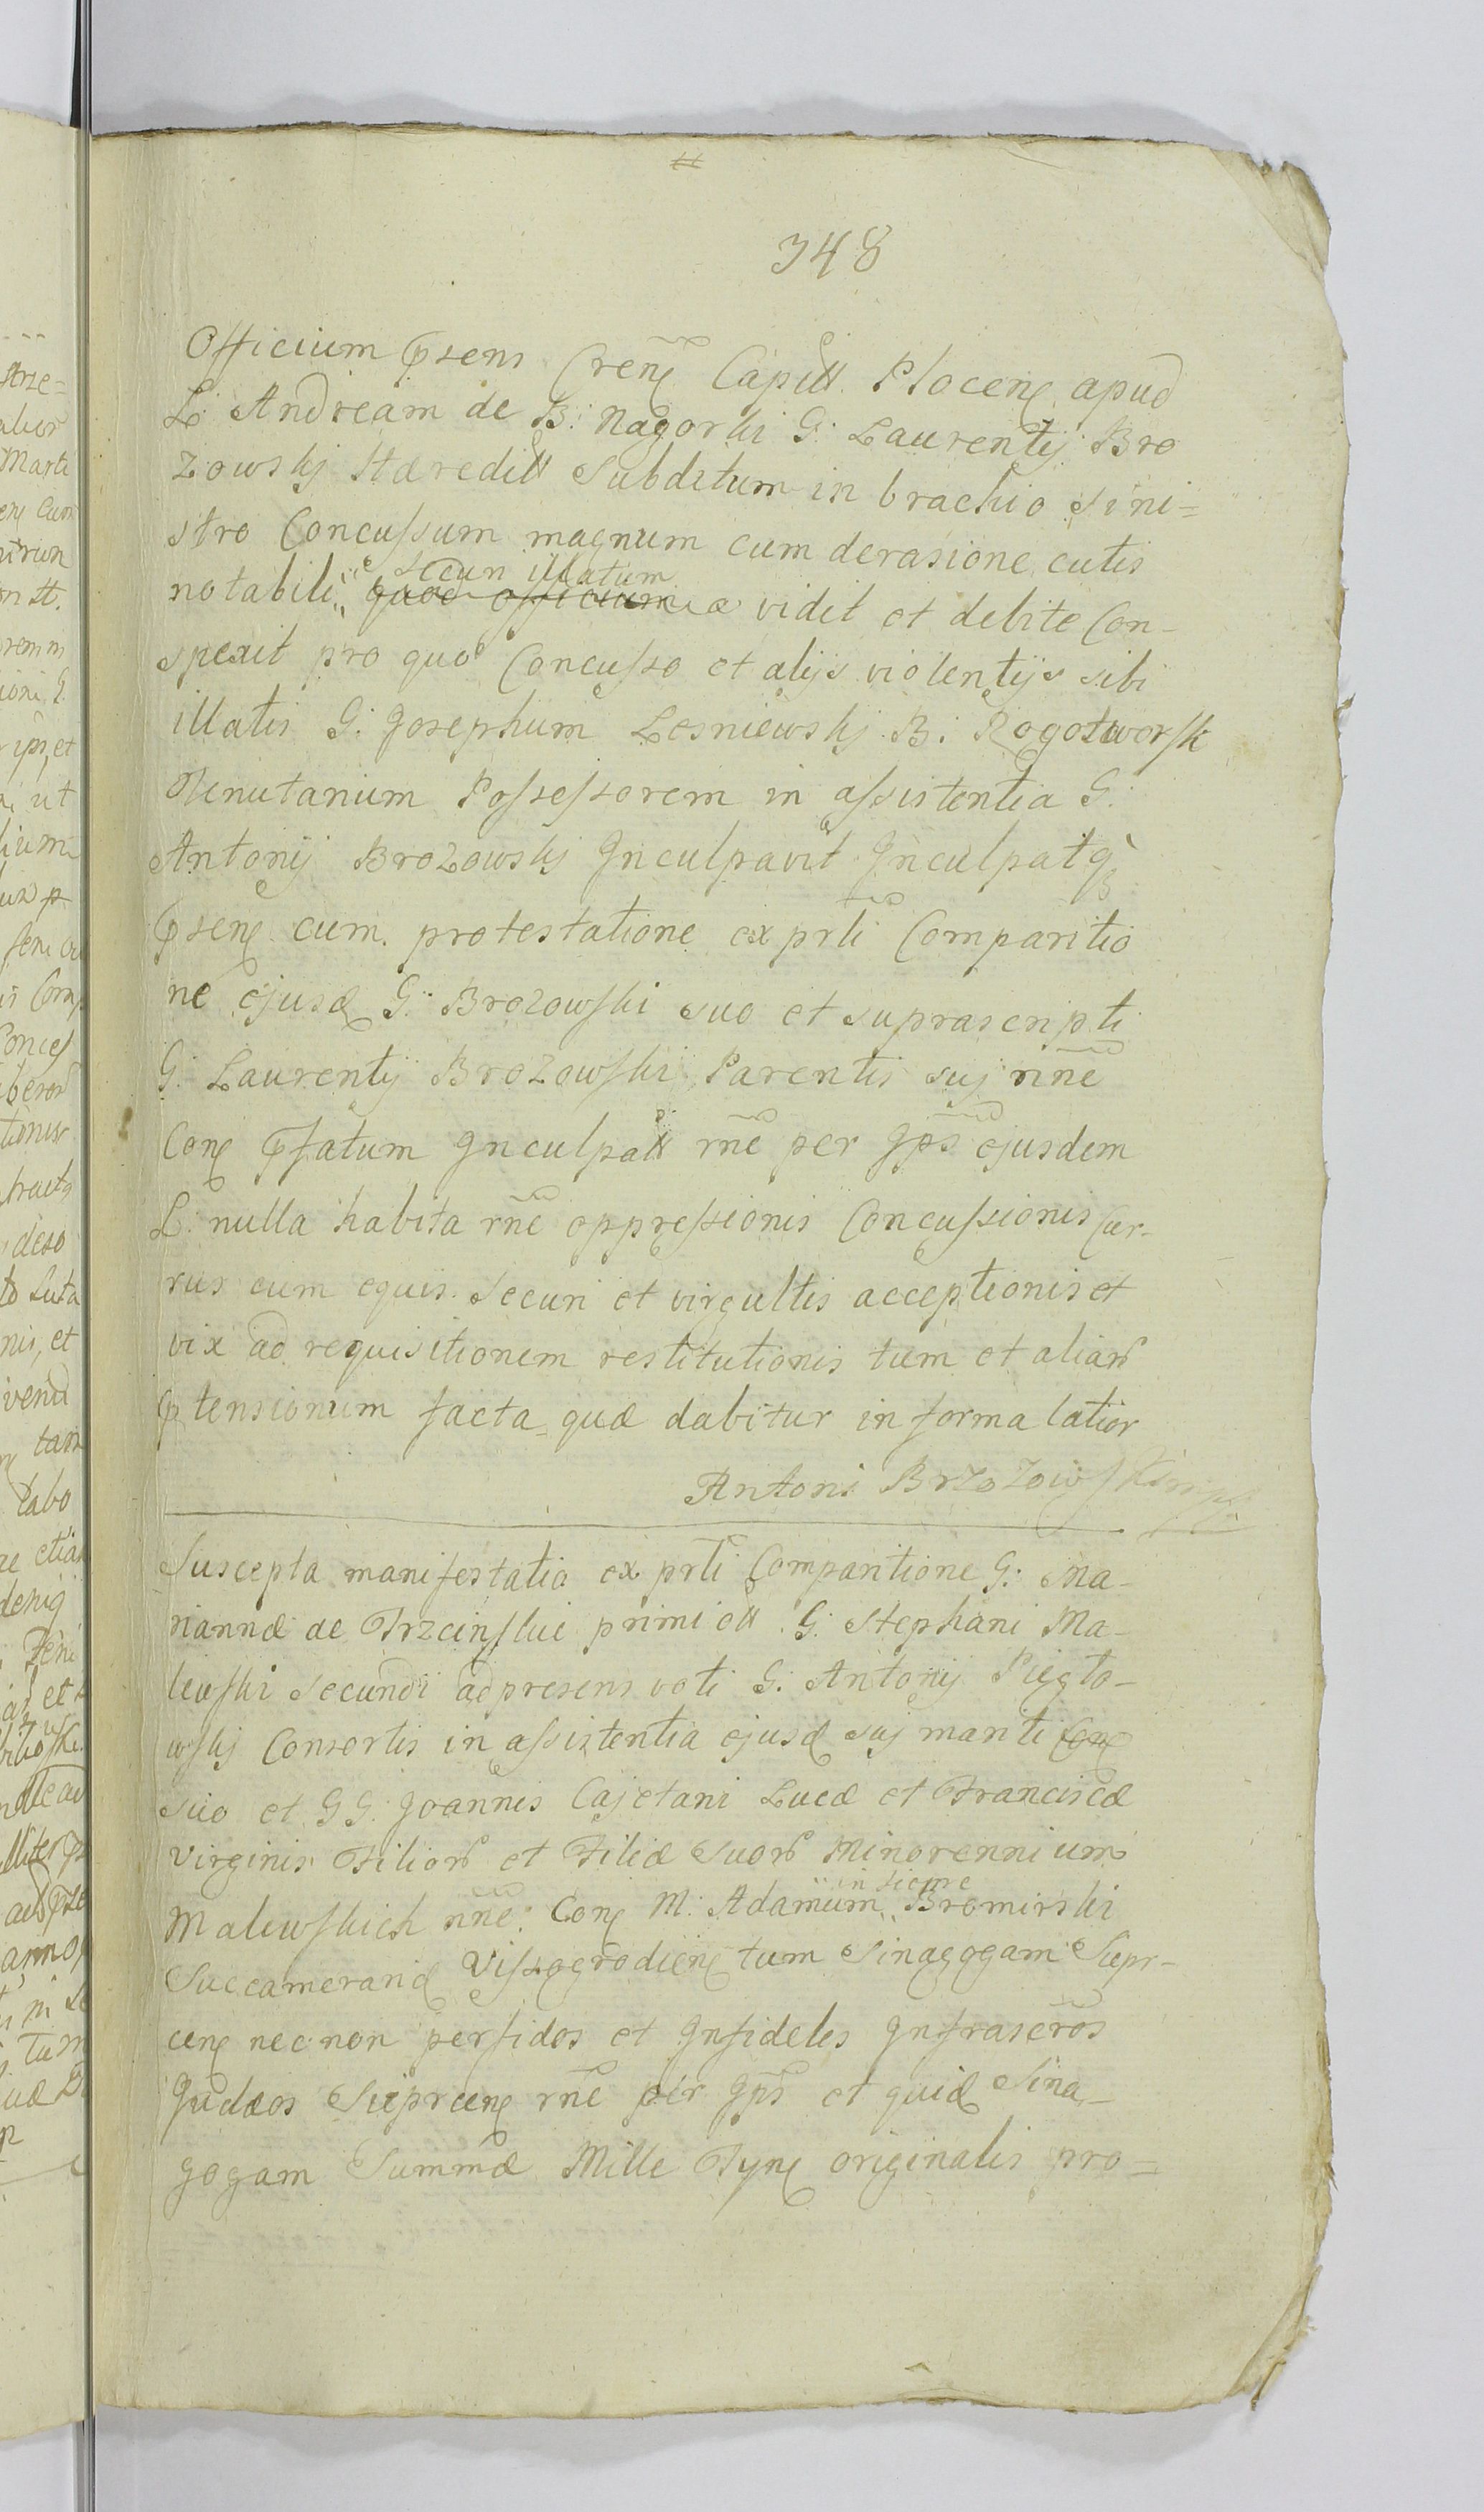 348
Officium Psens Crenẽ Capitt. Plocenẽ apud
L. Andream de B: Nagorki G: Laurentÿ Bro
zowskj Hæreditt Subditum in brachio sini=
stro Concussum magnum cum derasione cutis
secun illatum
notabili quod officium vidit et debite Con-
spexit pro quo Concusso et alijs violentijs sibi
illatis G: Josephum Lesniewskj B: Rogotworsk
Tenutarium Possessorem in assistentia G:
Antonij Brozowskj Inculpavit Inculpatq
Psenẽ cum protestatione ex prti Comparitio
ne ejusd G: Brozowski suo et suprascripti
G: Laurentÿ Brozowski Parentis suj nñe
Conẽ Pfatum Inculpatt rñe per Ips ejusdem
L: nulla habita rñe oppressionis Concussionis Cur-
rus cum equis Securi et virgultis acceptionis et
vix ad requisitionem restitutionis tum et aliar
Ptensionum facta quæ dabitur in forma latior
Antoni Brzozowski mp
Suscepta manifestatio ex prti Comparitione G: Ma-
riannæ de Trzcinskie primi ott G: Stephani Ma-
lewski Secundi ad presens voti G: Antonij Pigto-
wskj Consortis in assistentia ejusd suj mariti Conẽ
suo et GG: Joannis Cajetani Lucæ et Franciscæ
Virginis Filior et Filiæ Suor Minorennium
in sieme
Malewskich nñe: Conẽ M: Adamum Bromirski
Succamerarid Vissogrodienẽ tum Sinagogam Siepr-
cenẽ nec non perfidos et Infideles Infrascros
Judæos Siepreenẽ rñe per Ips et quid Sina-
gogam Summæ Mille Tynẽ originalis pro=